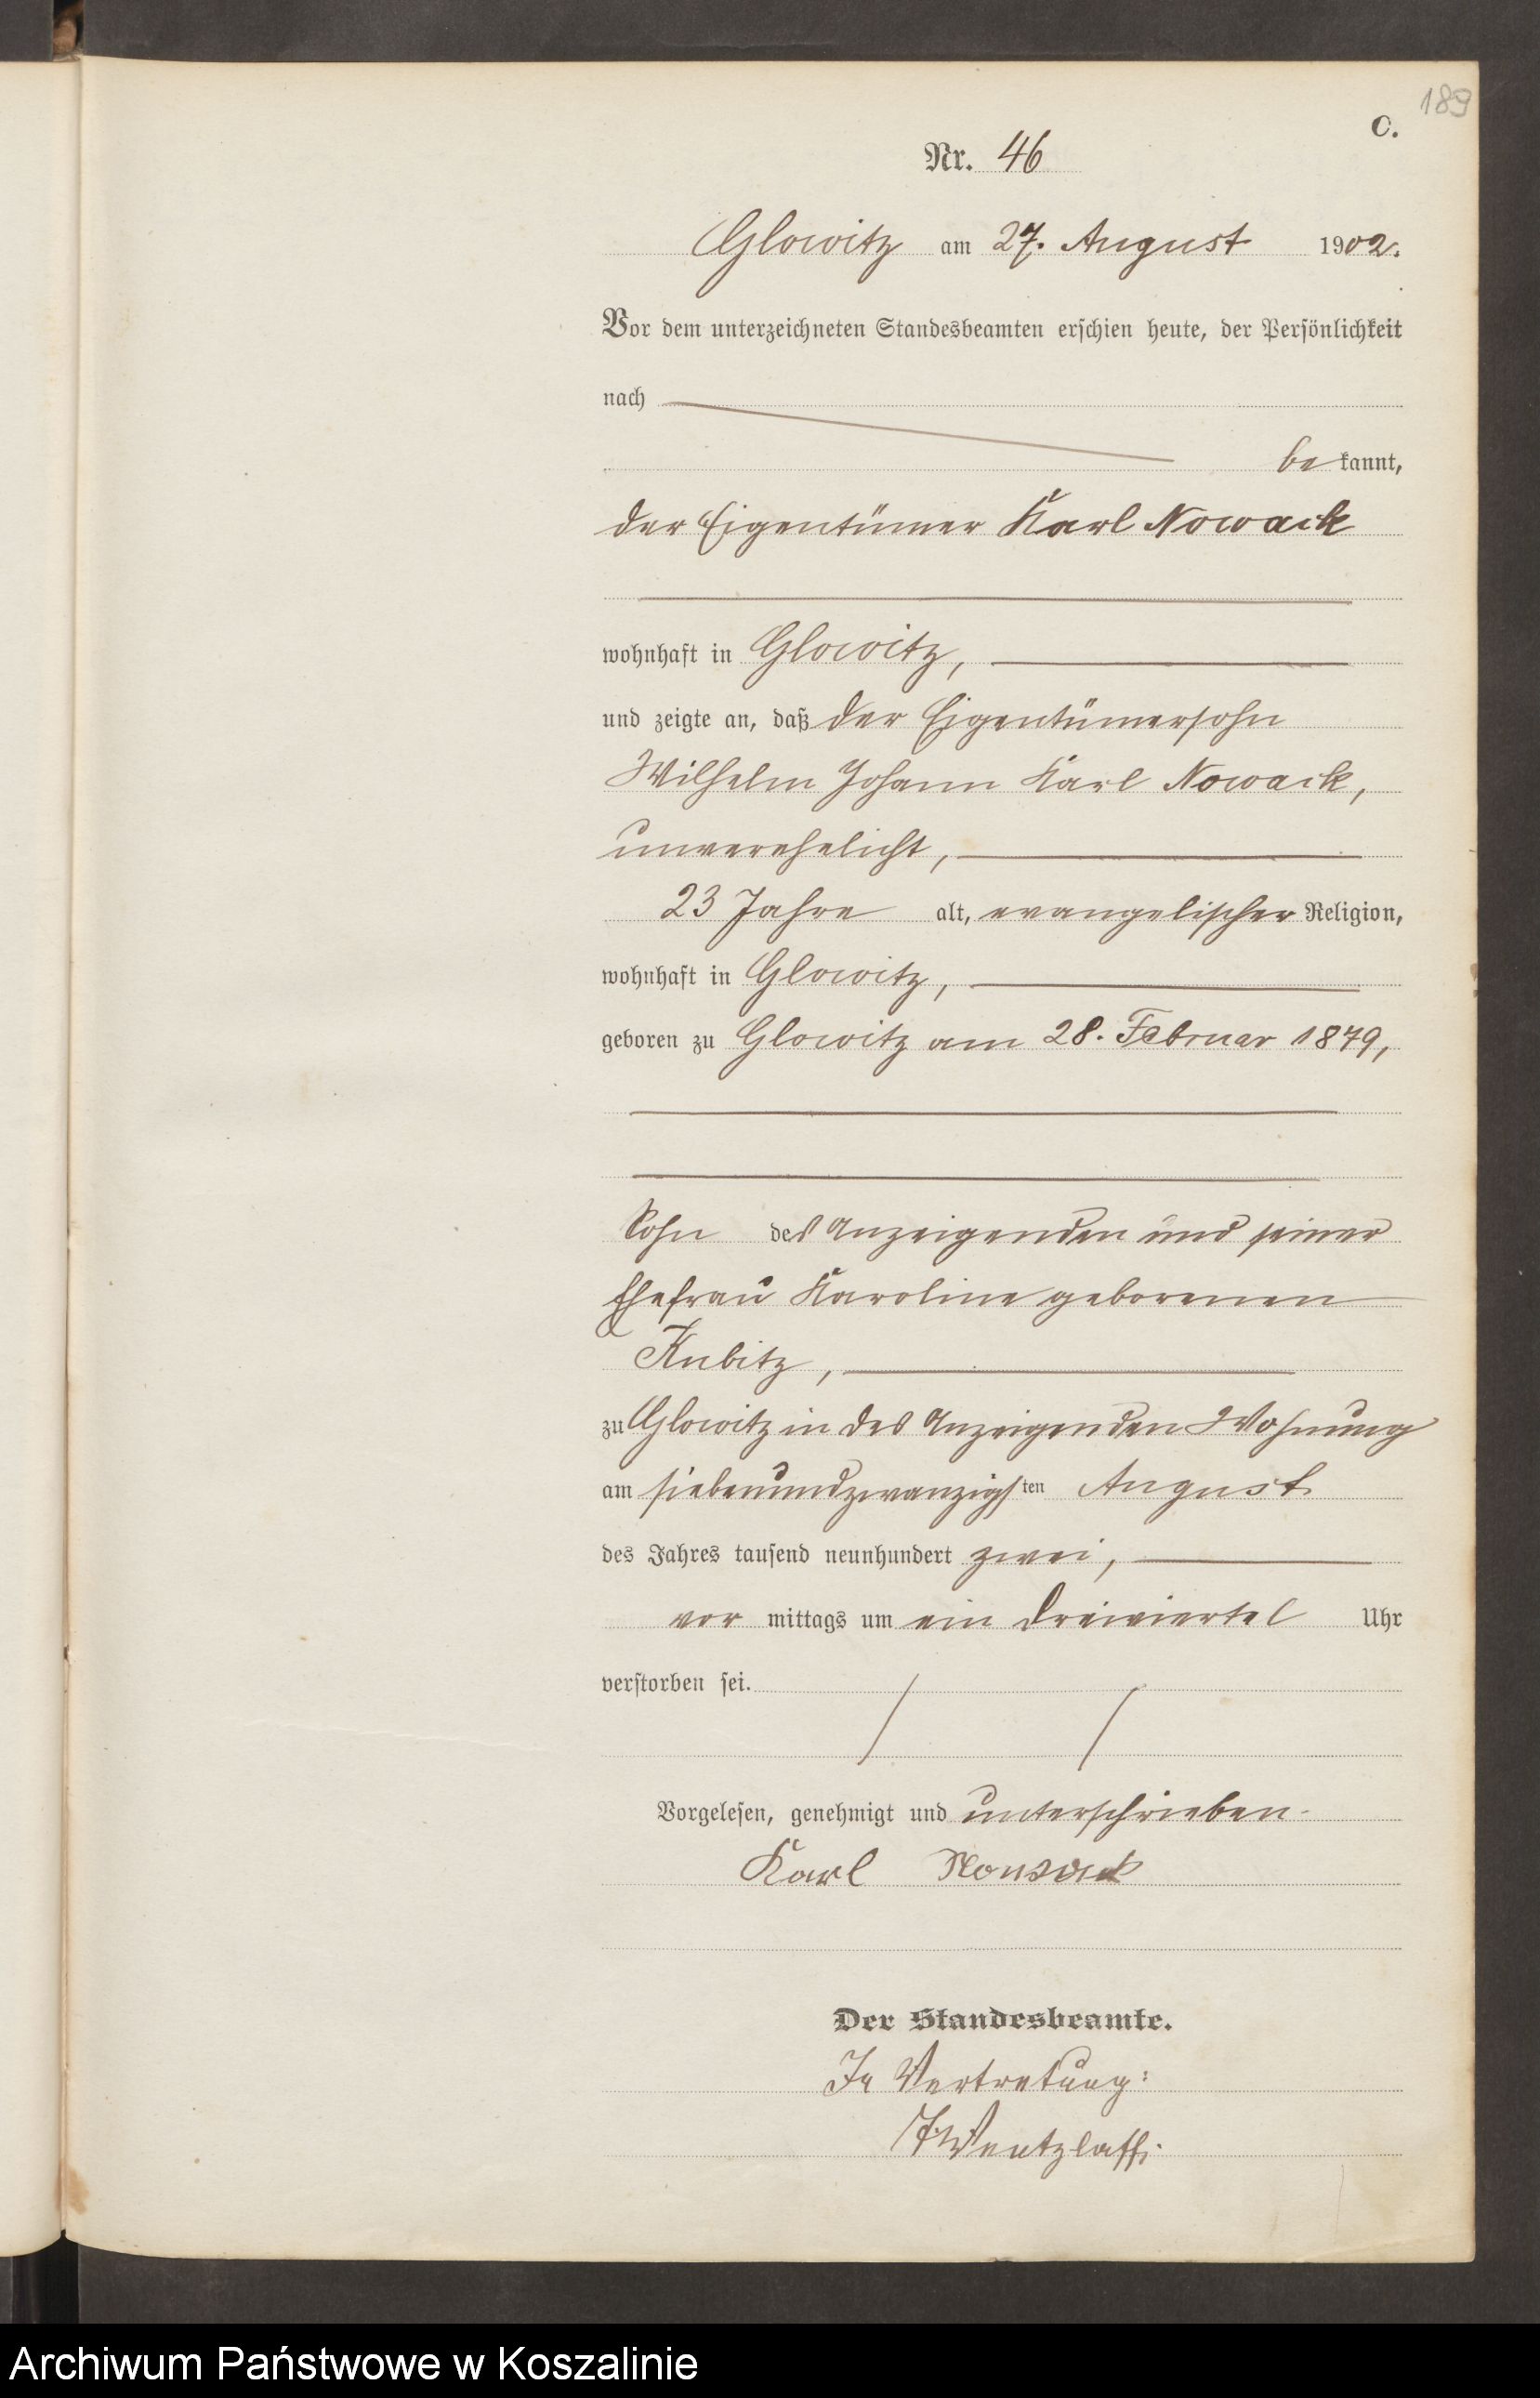 189
C.
Nr. 46
Glowitz am 27. August 1902.
Vor dem unterzeichneten Standesbeamten erschien heute, der Persönlichkeit
nach
be kannt,
der Eigentümer Karl Nowack
wohnhaft in Glowitz,
und zeigte an, daß der Eigentümersohn
Wilhelm Johann Karl Nowack,
unverehelicht,
23 Jahre alt, evangelischer Religion,
wohnhaft in Glowitz,
geboren zu Glowitz am 28. Februar 1879,
Sohn des Anzeigenden und seiner
Ehefrau Karoline geborenen
Kubitz,
zu Glowitz in des Anzeigenden Wohnung
am siebenundzwanzigsten August
des Jahres tausend neunhundert zwei,
vor mittags um ein dreiviertel Uhr
verstorben sei.
Vorgelesen, genehmigt und unterschrieben.
Karl Nowack
Der Standesbeamte.
In Vertretung:
Wentzlaff.
Archiwum Państwowe w Koszalinie